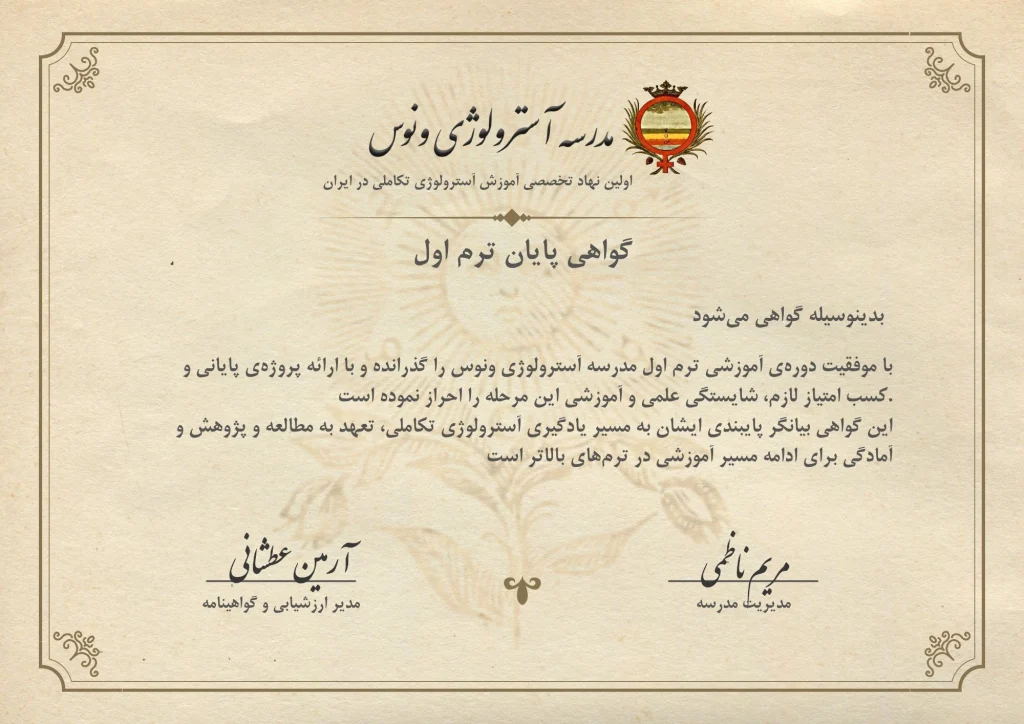 مدرسه آسترولوژی ونوس
اولین نهاد تخصصی آموزش آسترولوژی تکاملی در ایران
گواهی پایان ترم اول
بدینوسیله گواهی می‌شود
با موفقیت دوره‌ی آموزشی ترم اول مدرسه آسترولوژی ونوس را گذرانده و با ارائه پروژه‌ی پایانی و
.کسب امتیاز لازم، شایستگی علمی و آموزشی این مرحله را احراز نموده است
این گواهی بیانگر پایبندی ایشان به مسیر یادگیری آسترولوژی تکاملی، تعهد به مطالعه و پژوهش و
آمادگی برای ادامه مسیر آموزشی در ترم‌های بالاتر است
مریم ناظمی
مدیریت مدرسه
آرمین عطشانی
مدیر ارزشیابی و گواهینامه